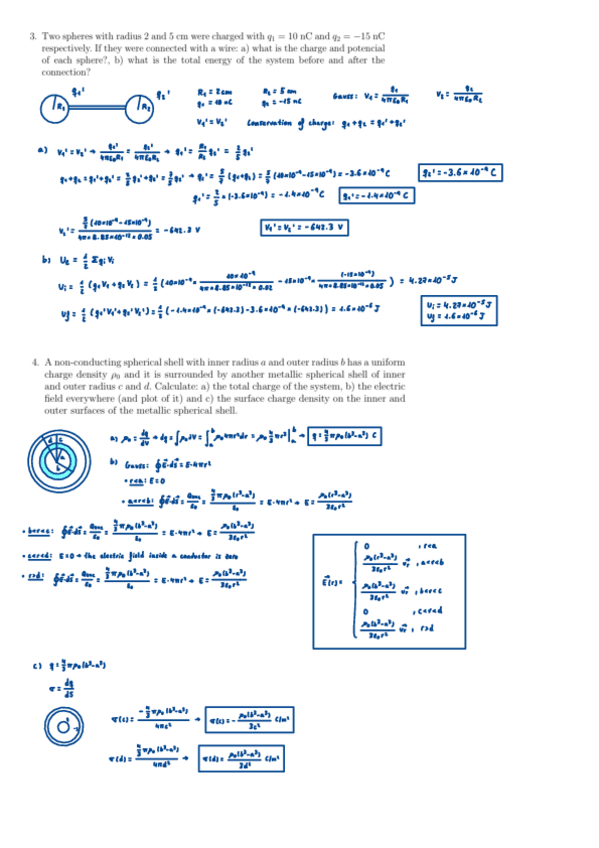 3. Two spheres with radius 2 and 5 cm were charged with q₁ = 10 nC and q₂ = −15 nC
respectively. If they were connected with a wire: a) what is the charge and potencial
of each sphere?, b) what is the total energy of the system before and after the
connection?
q₁' q₂' R₁ = 2cm R₂ = 5cm Gauss: V₁ = q₁/4πε₀R₁ V₂ = q₂/4πε₀R₂
R₁ R₂ q₁ = 10 nC q₂ = −15 nC
V₁' = V₂' Conservation of charge: q₁ + q₂ = q₁' + q₂'
a) V₁' = V₂' → q₁'/4πε₀R₁ = q₂'/4πε₀R₂ → q₁' = R₁/R₂ q₂' = 2/5 q₂'
q₁+q₂ = q₁'+q₂' = 2/5 q₂'+q₂' = 7/5 q₂' → q₂' = 5/7 (q₁+q₂) = 5/7 (10×10⁻⁹−15×10⁻⁹) = −3.6×10⁻⁹ C q₂' = −3.6×10⁻⁹ C
q₁' = 2/5 × (−3.6×10⁻⁹) = −1.4×10⁻⁹ C q₁' = −1.4×10⁻⁹ C
V₂' = 5/7 (10×10⁻⁹−15×10⁻⁹)/4π×8.85×10⁻¹²×0.05 = −642.3 V V₁' = V₂' = −642.3 V
b) Uₑ = 1/2 Σqᵢ Vᵢ
Uᵢ = 1/2 (q₁V₁+q₂V₂) = 1/2 (10×10⁻⁹ × 10×10⁻⁹/4π×8.85×10⁻¹²×0.02 − 15×10⁻⁹ × (−15×10⁻⁹)/4π×8.85×10⁻¹²×0.05) = 4.27×10⁻⁵ J
Uf = 1/2 (q₁'V₁'+q₂'V₂') = 1/2 (−1.4×10⁻⁹×(−642.3)−3.6×10⁻⁹×(−642.3)) = 1.6×10⁻⁶ J
Uᵢ = 4.27×10⁻⁵ J
Uf = 1.6×10⁻⁶ J
4. A non-conducting spherical shell with inner radius a and outer radius b has a uniform
charge density ρ₀ and it is surrounded by another metallic spherical shell of inner
and outer radius c and d. Calculate: a) the total charge of the system, b) the electric
field everywhere (and plot of it) and c) the surface charge density on the inner and
outer surfaces of the metallic spherical shell.
d c b a
a) ρ₀ = dq/dV → dq = ∫ρ₀dV = ∫ₐᵇ ρ₀4πr²dr = ρ₀ 4/3 πr³|ₐᵇ → q = 4/3 πρ₀(b³−a³) C
b) Gauss: ∮E⃗·dS⃗ = E·4πr²
• r<a: E=0
• a<r<b: ∮E⃗·dS⃗ = /ε₀ = 4/3 πρ₀(r³−a³)/ε₀ = E·4πr² → E = ρ₀(r³−a³)/3ε₀r²
• b<r<c: ∮E⃗·dS⃗ = /ε₀ = 4/3 πρ₀(b³−a³)/ε₀ = E·4πr² → E = ρ₀(b³−a³)/3ε₀r²
• c<r<d: E=0 → the electric field inside a conductor is zero
• r>d: ∮E⃗·dS⃗ = /ε₀ = 4/3 πρ₀(b³−a³)/ε₀ = E·4πr² → E = ρ₀(b³−a³)/3ε₀r²
E⃗(r) =
0 , r<a
ρ₀(r³−a³)/3ε₀r² , a<r<b
ρ₀(b³−a³)/3ε₀r² , b<r<c
0 , c<r<d
ρ₀(b³−a³)/3ε₀r² , r>d
c) q = 4/3 πρ₀(b³−a³)
σ = dq/dS
σ(c) = −4/3 πρ₀(b³−a³)/4πc² → σ(c) = −ρ₀(b³−a³)/3c² C/m²
σ(d) = 4/3 πρ₀(b³−a³)/4πd² → σ(d) = ρ₀(b³−a³)/3d² C/m²